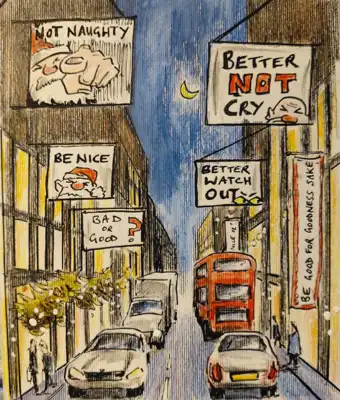 NOT NAUGHTY
BETTER
NOT
CRY
BE NICE
BETTER
WATCH
OUT
BAD
OR
GOOD ?
BE GOOD FOR GOODNESS SAKE